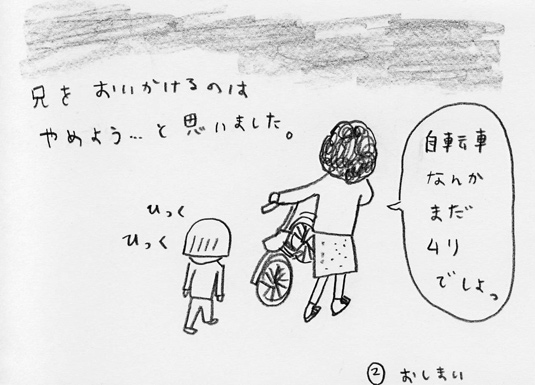 兄を おいかけるのは
やめよう…と思いました。
ひっく
ひっく
自転車
なんか
まだ
ムリ
でしょっ
② おしまい